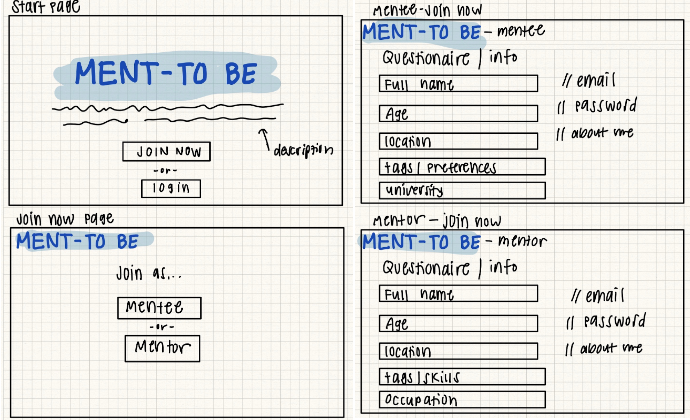 Start page
MENT-TO BE
JOIN NOW
-or-
login
description
mentee-Join now
MENT-TO BE - mentee
Questionaire | info
Full name
Age
location
tags | preferences
university
// email
// password
// about me
Join now page
MENT-TO BE
Join as...
Mentee
-or-
Mentor
mentor - join now
MENT-TO BE - mentor
Questionaire | info
Full name
Age
location
tags | skills
occupation
// email
// password
// about me